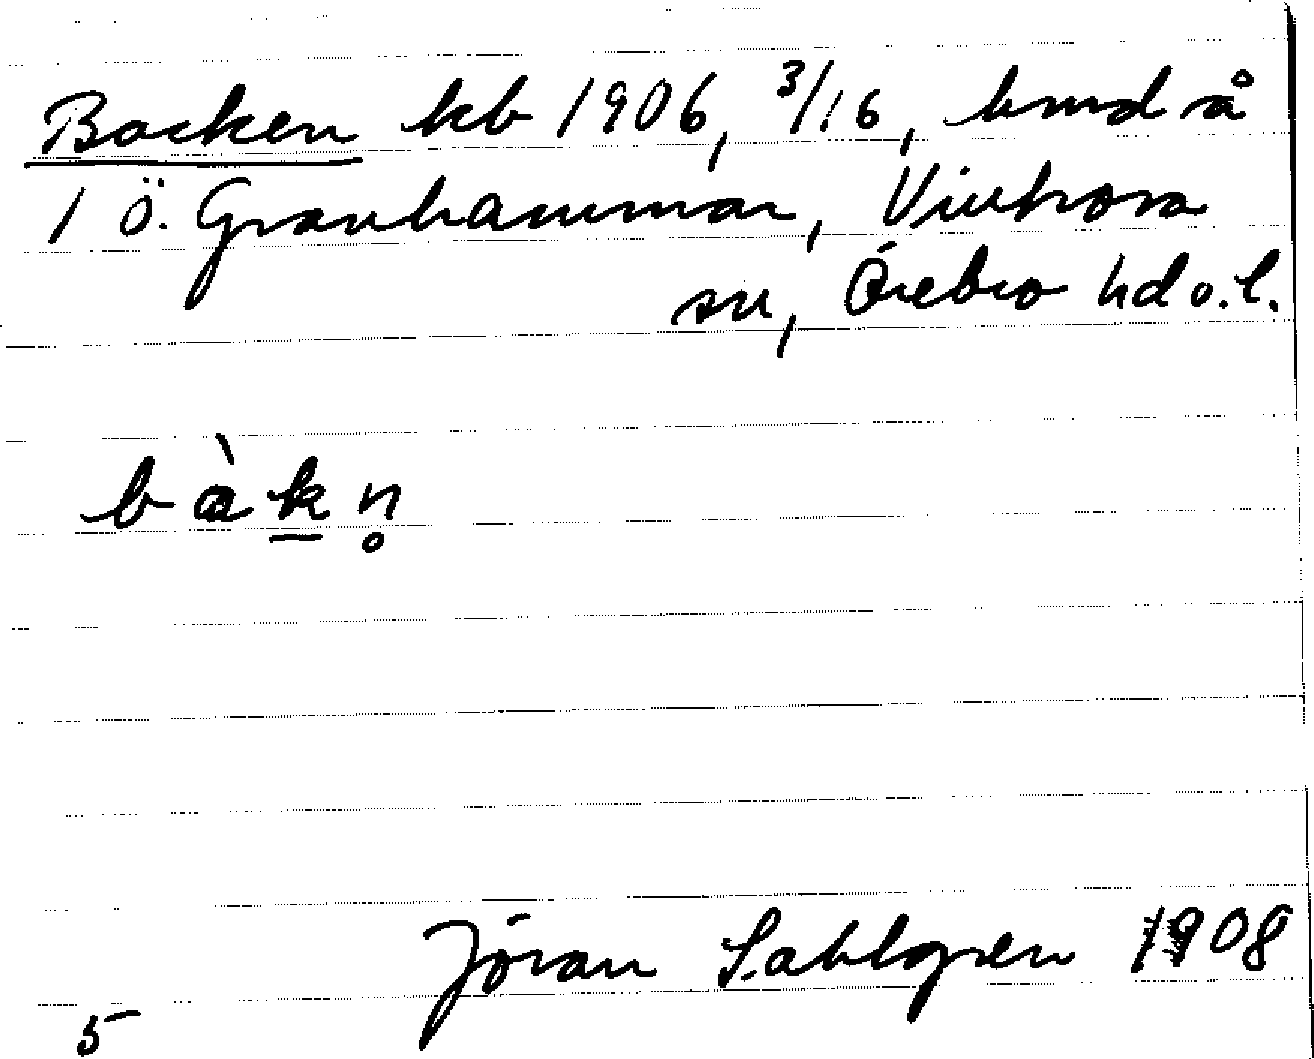 Backen kb 1906, 3/16, hmd å
1 Ö. Granhammar, Vintrosa
sn, Örebro hd o. l.
bàk̲n̥
Jöran Sahlgren 1908
5